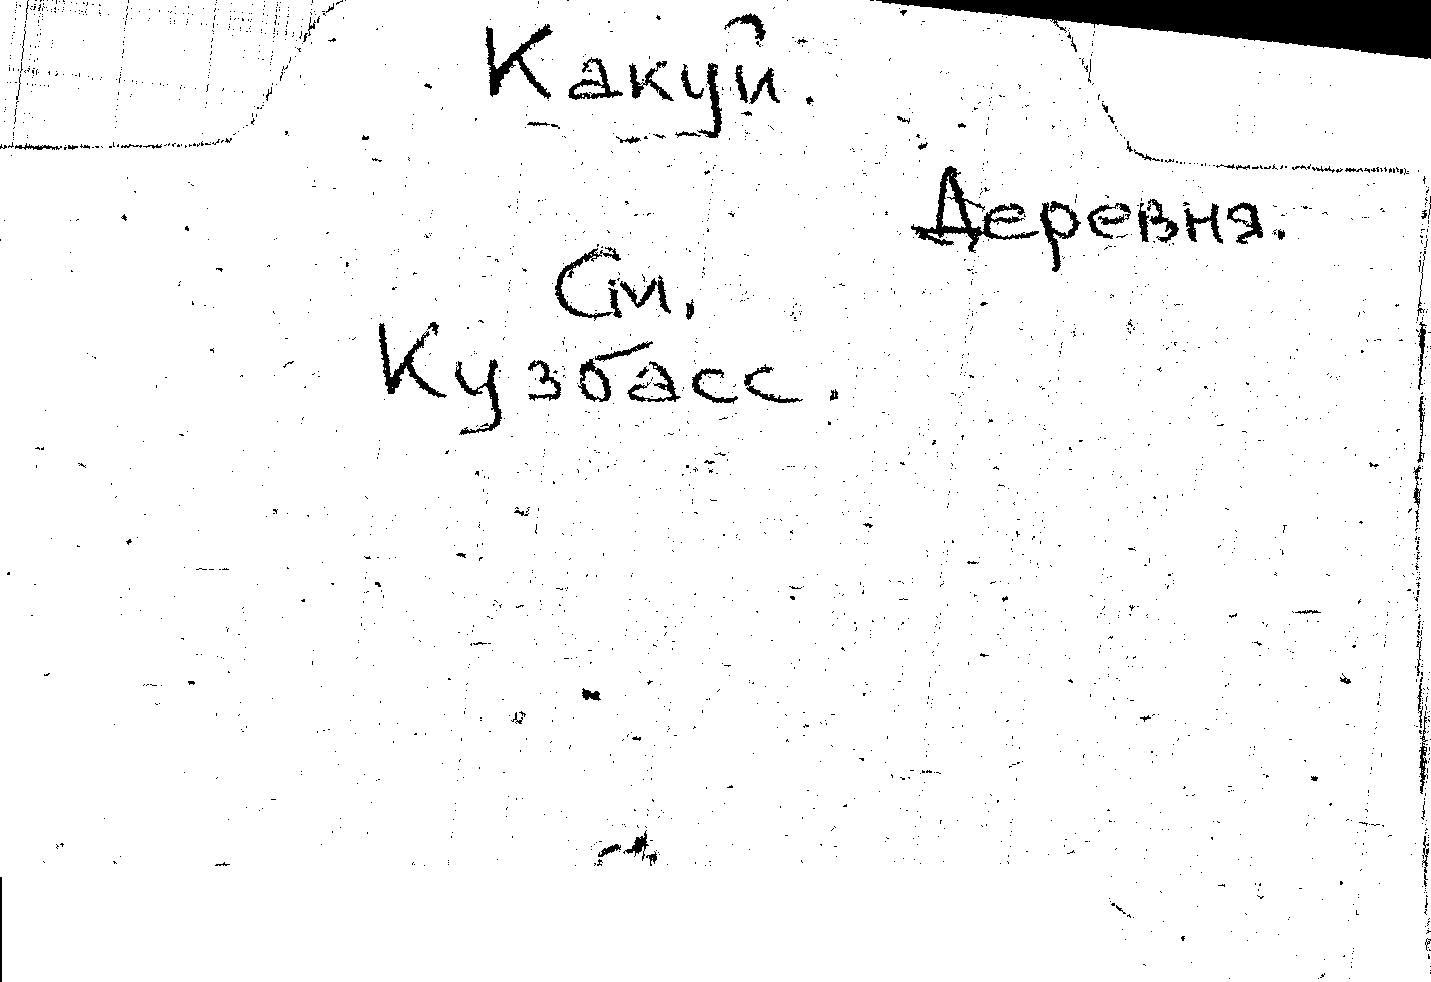 Какуй.
Деревня.
См.
Кузбасс.